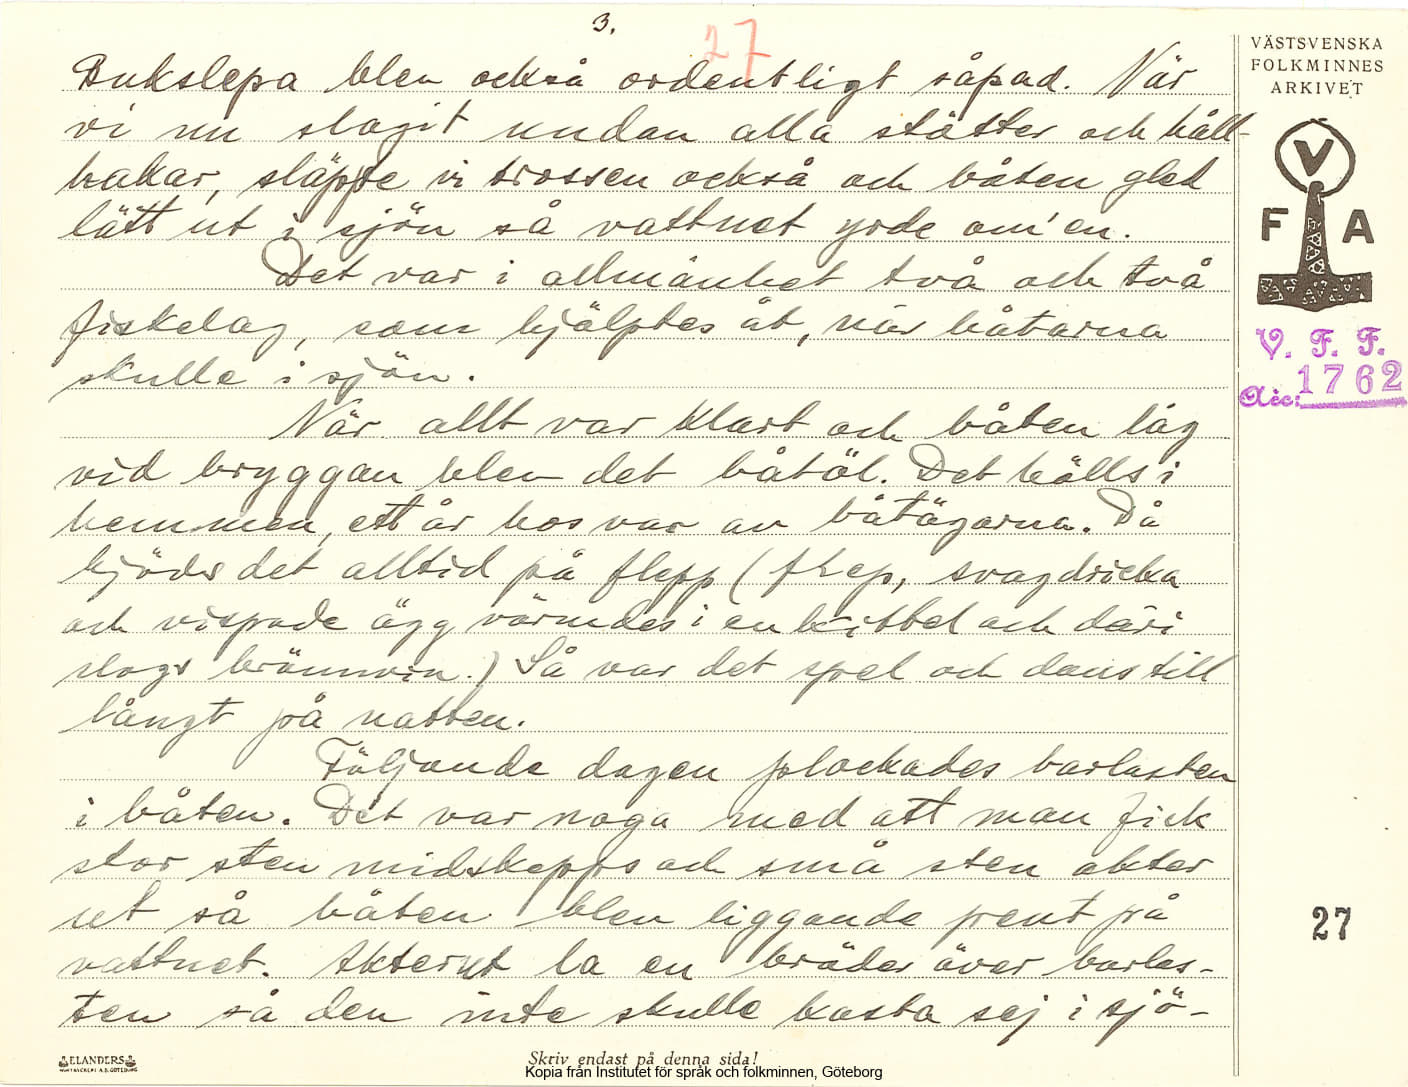 3.
27
Bukslepa blev också ordentligt såpad. När
vi nu slagit undan alla stötter och håll-
hakar, släppte vi trossen också och båten gled
lätt ut i sjön så vattnet yrde om'en.
Det var i allmänhet två och två
fiskelag, som hjälptes åt, när båtarna
skulle i sjön.
När allt var klart och båten låg
vid bryggan blev det båtöl. Det hölls i
hemmen, ett år hos var av båtägarna. Då
bjöds det alltid på flepp (flep, svagdricka
och vispade ägg värmdes i en kittel och däri
slogs brännvin.) Så var det spel och dans till
långt på natten.
Följande dagen plockades barlasten
i båten. Det var noga med att man fick
stor sten midskepps och små sten akter
ut så båten blev liggande pent på
vattnet. Akterut la en bräder över barlas-
ten så den inte skulle kasta sej i sjö-
VÄSTSVENSKA
FOLKMINNES
ARKIVET
V
F A
V. F. F.
Acc: 1762
27
ELANDERS
BOKTRYCKERI A.B. GÖTEBORG
Skriv endast på denna sida!
Kopia från Institutet för språk och folkminnen, Göteborg